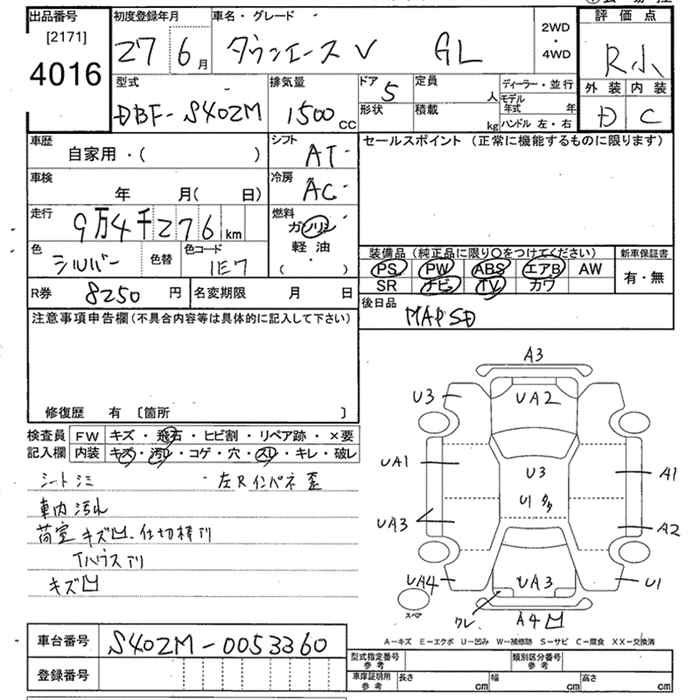 出品番号
[2171]
4016
初度登録年月
27 6月
車名・グレード
タウンエースV GL
2WD
・
4WD
評価点
R小
外装 内装
D C
型式
DBF-S402M
排気量
1500 cc
ドア 5
形状
定員 人
積載 kg
ディーラー・並行
モデル年式 年
ハンドル 左・右
車歴
自家用・( )
シフト
AT
セールスポイント (正常に機能するものに限ります)
車検
年 月( 日)
冷房
AC
走行
9万4千276km
燃料
ガソリン
軽油
( )
色
シルバー
色替
色コード
1E7
装備品 (純正品に限り○をつけてください)
PS PW ABS エアB AW
SR ナビ TV カワ
新車保証書
有・無
R券 8250円
名変期限 月 日
後日品
MAPSD
注意事項申告欄(不具合内容等は具体的に記入して下さい)
修復歴 有 〔箇所 〕
検査員記入欄
FW キズ・飛石・ヒビ割・リペア跡・×要
内装 キズ・汚レ・コゲ・穴・スレ・キレ・破レ
シートシミ 左Rインパネ歪
車内汚れ
荷室キズ凹、仕切棒クリ
Tハウスクリ
キズ凹
A3
U3
UA2
UA1
U3
A1
U1 多
UA3
A2
UA4
UA3
U1
ワレ
A4凹
スペア
A－キズ E－エクボ U－凹み W－補修跡 S－サビ C－腐食 XX－交換済
車台番号
S402M-0053360
登録番号
型式指定番号 参考
類別区分番号 参考
車庫証明用 参考
長さ cm
幅 cm
高さ cm